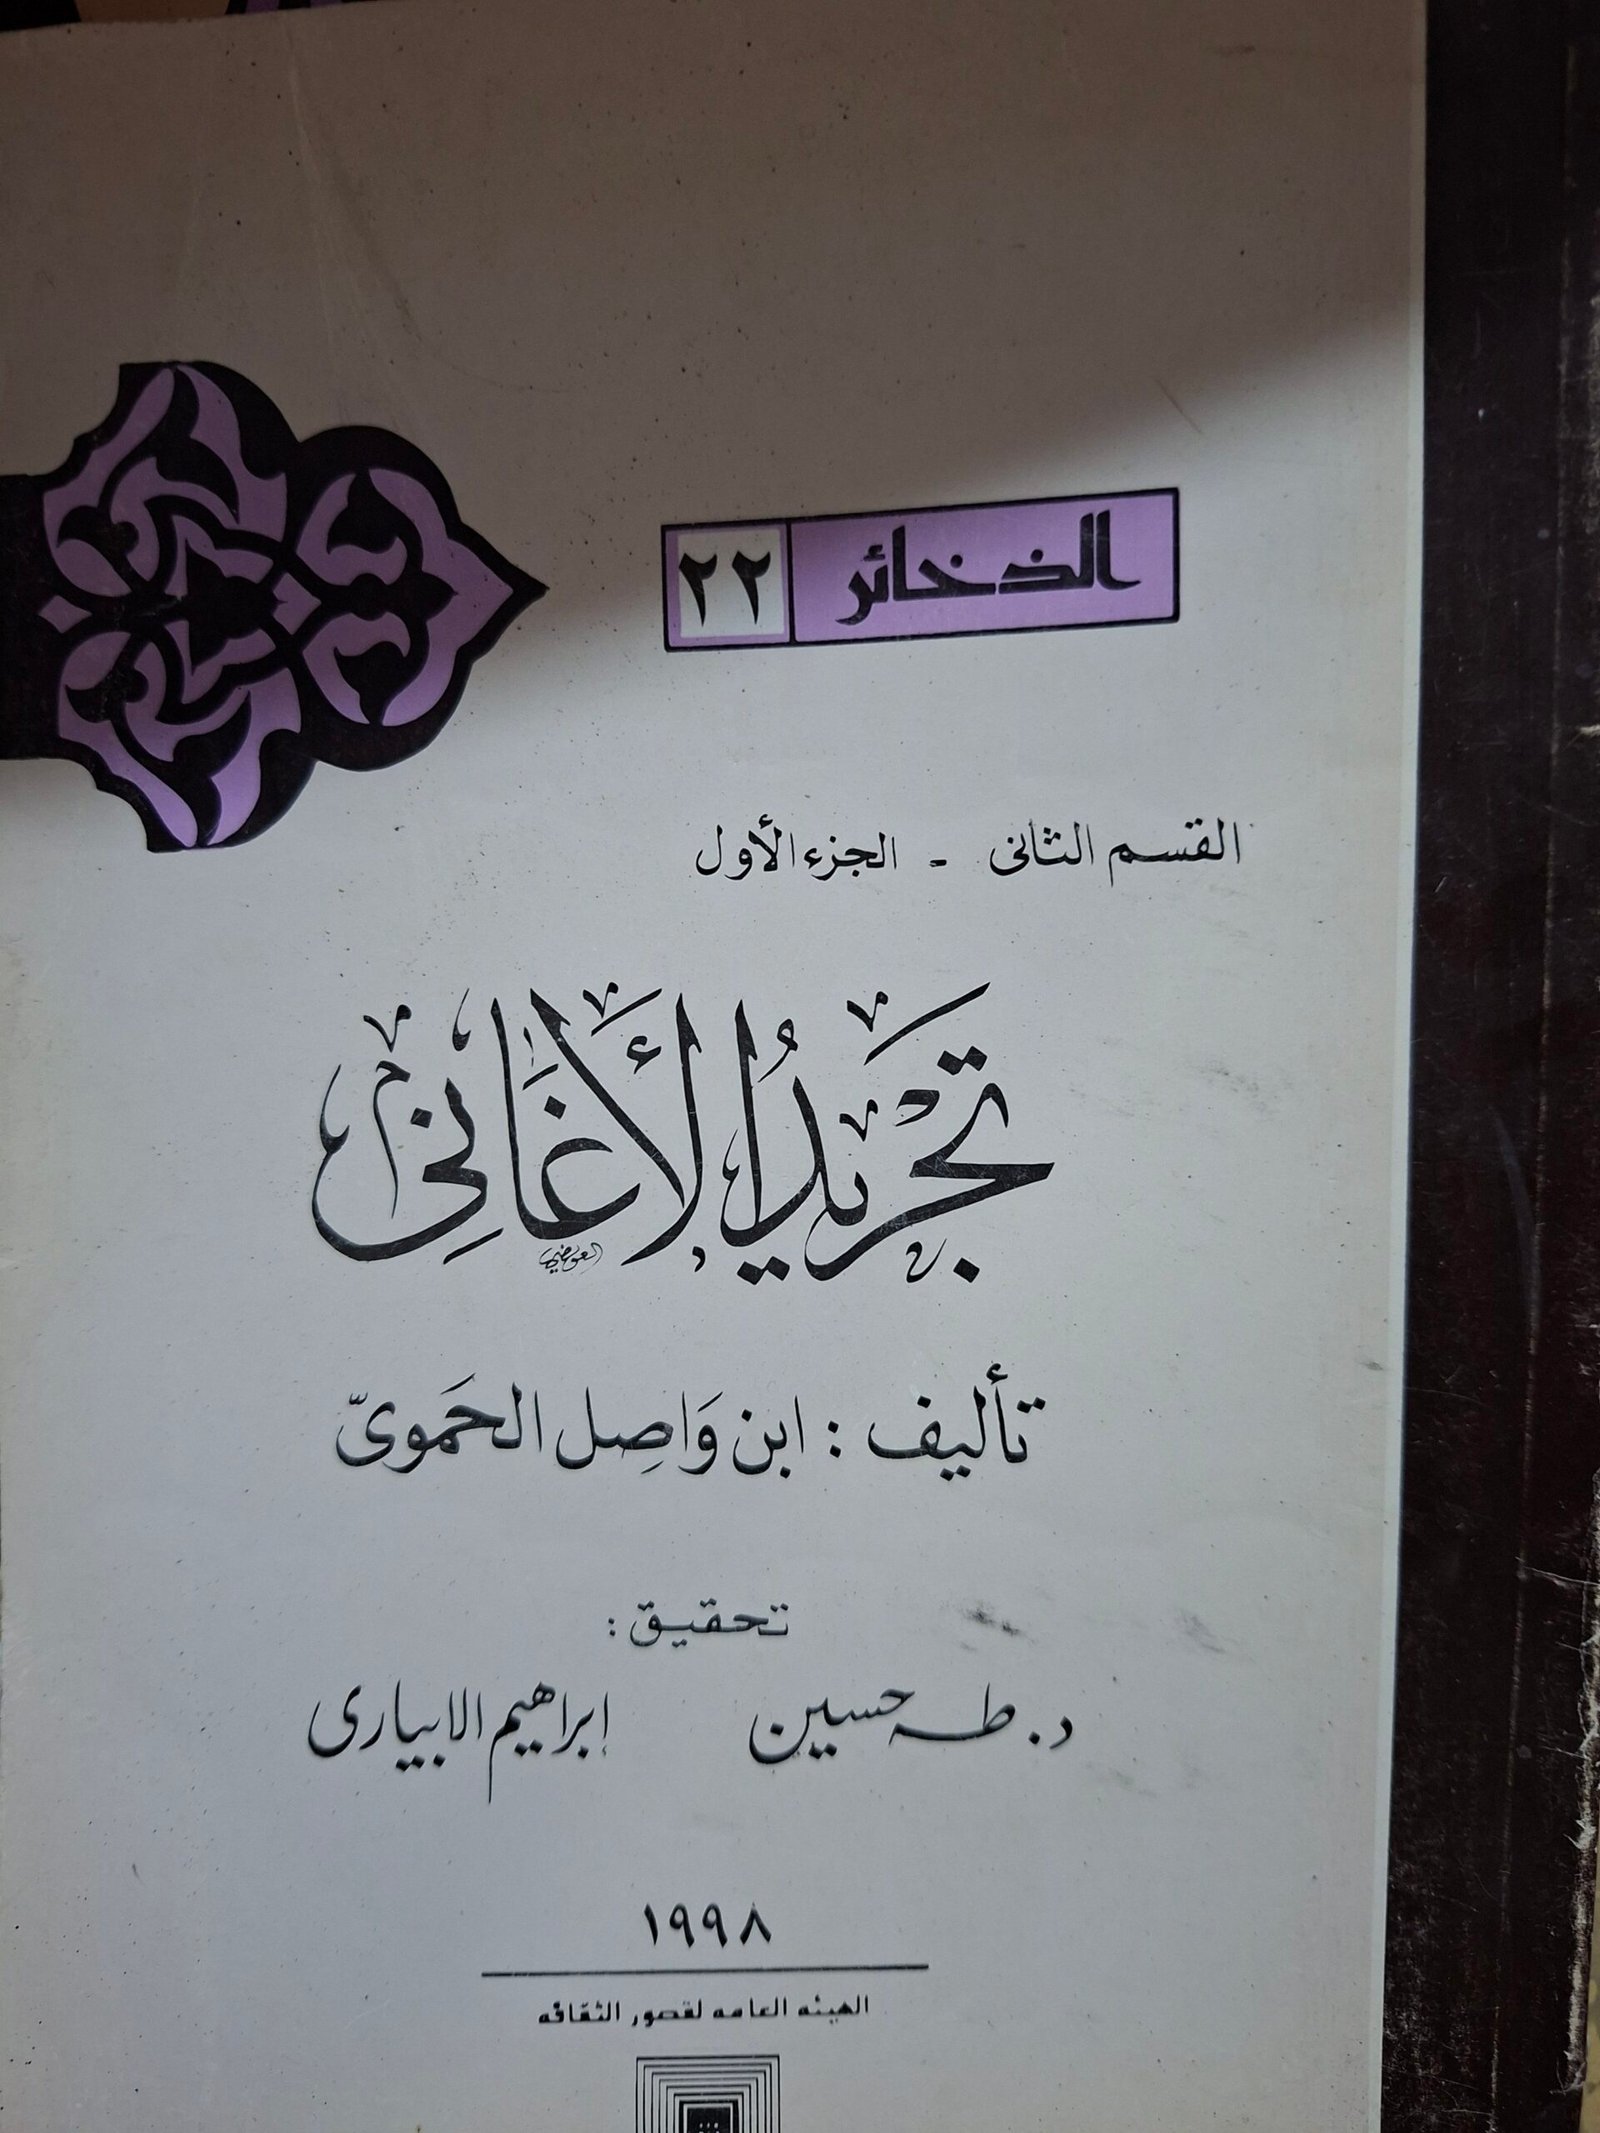 الذخائر ٢٢
القسم الثانى - الجزء الأول
تجريدُ الأغانى
تأليف : ابن وَاصِل الحَموىّ
تحقيق :
د. طه حسين ابراهيم الابيارى
١٩٩٨
الهيئه العامه لقصور الثقافه